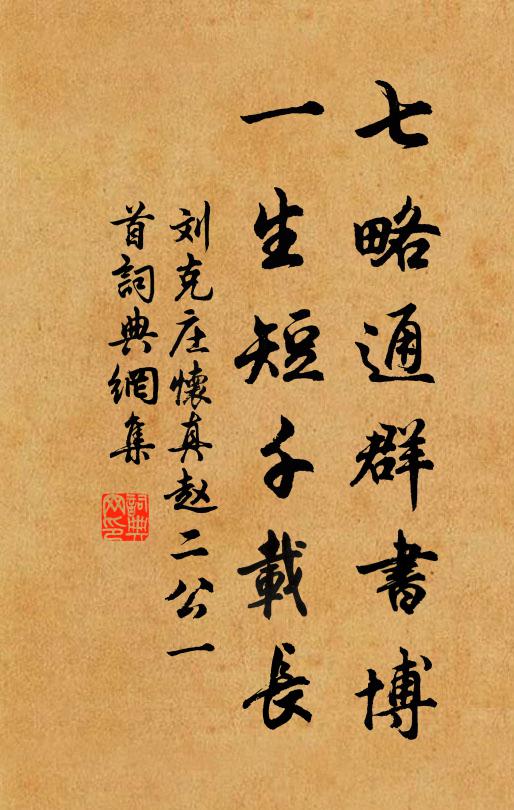 七略通群書博
一生短千載長
刘克庄懷真赵二公一
首詞典網集
詞典網印